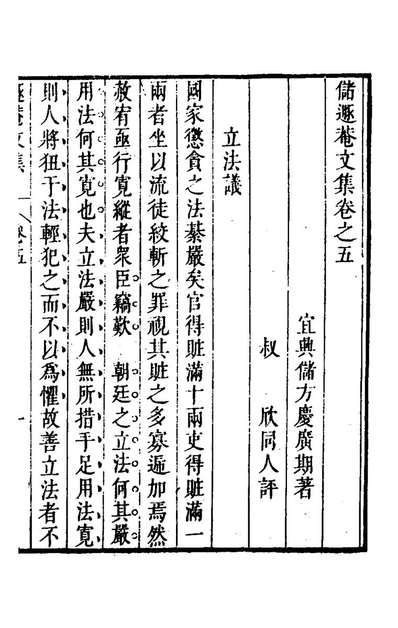 儲遯菴文集卷之五
宜興儲方慶廣期著
叔　欣同人評
立法議
國家懲貪之法綦嚴矣官得贓滿十兩吏得贓滿一
兩者坐以流徒絞斬之罪視其贓之多寡遞加焉然
赦宥亟行寬縱者衆臣竊歎　朝廷之立法何其嚴
用法何其寬也夫立法嚴則人無所措手足用法寬
則人將狃于法輕犯之而不以爲懼故善立法者不
遯菴文集　卷五　一